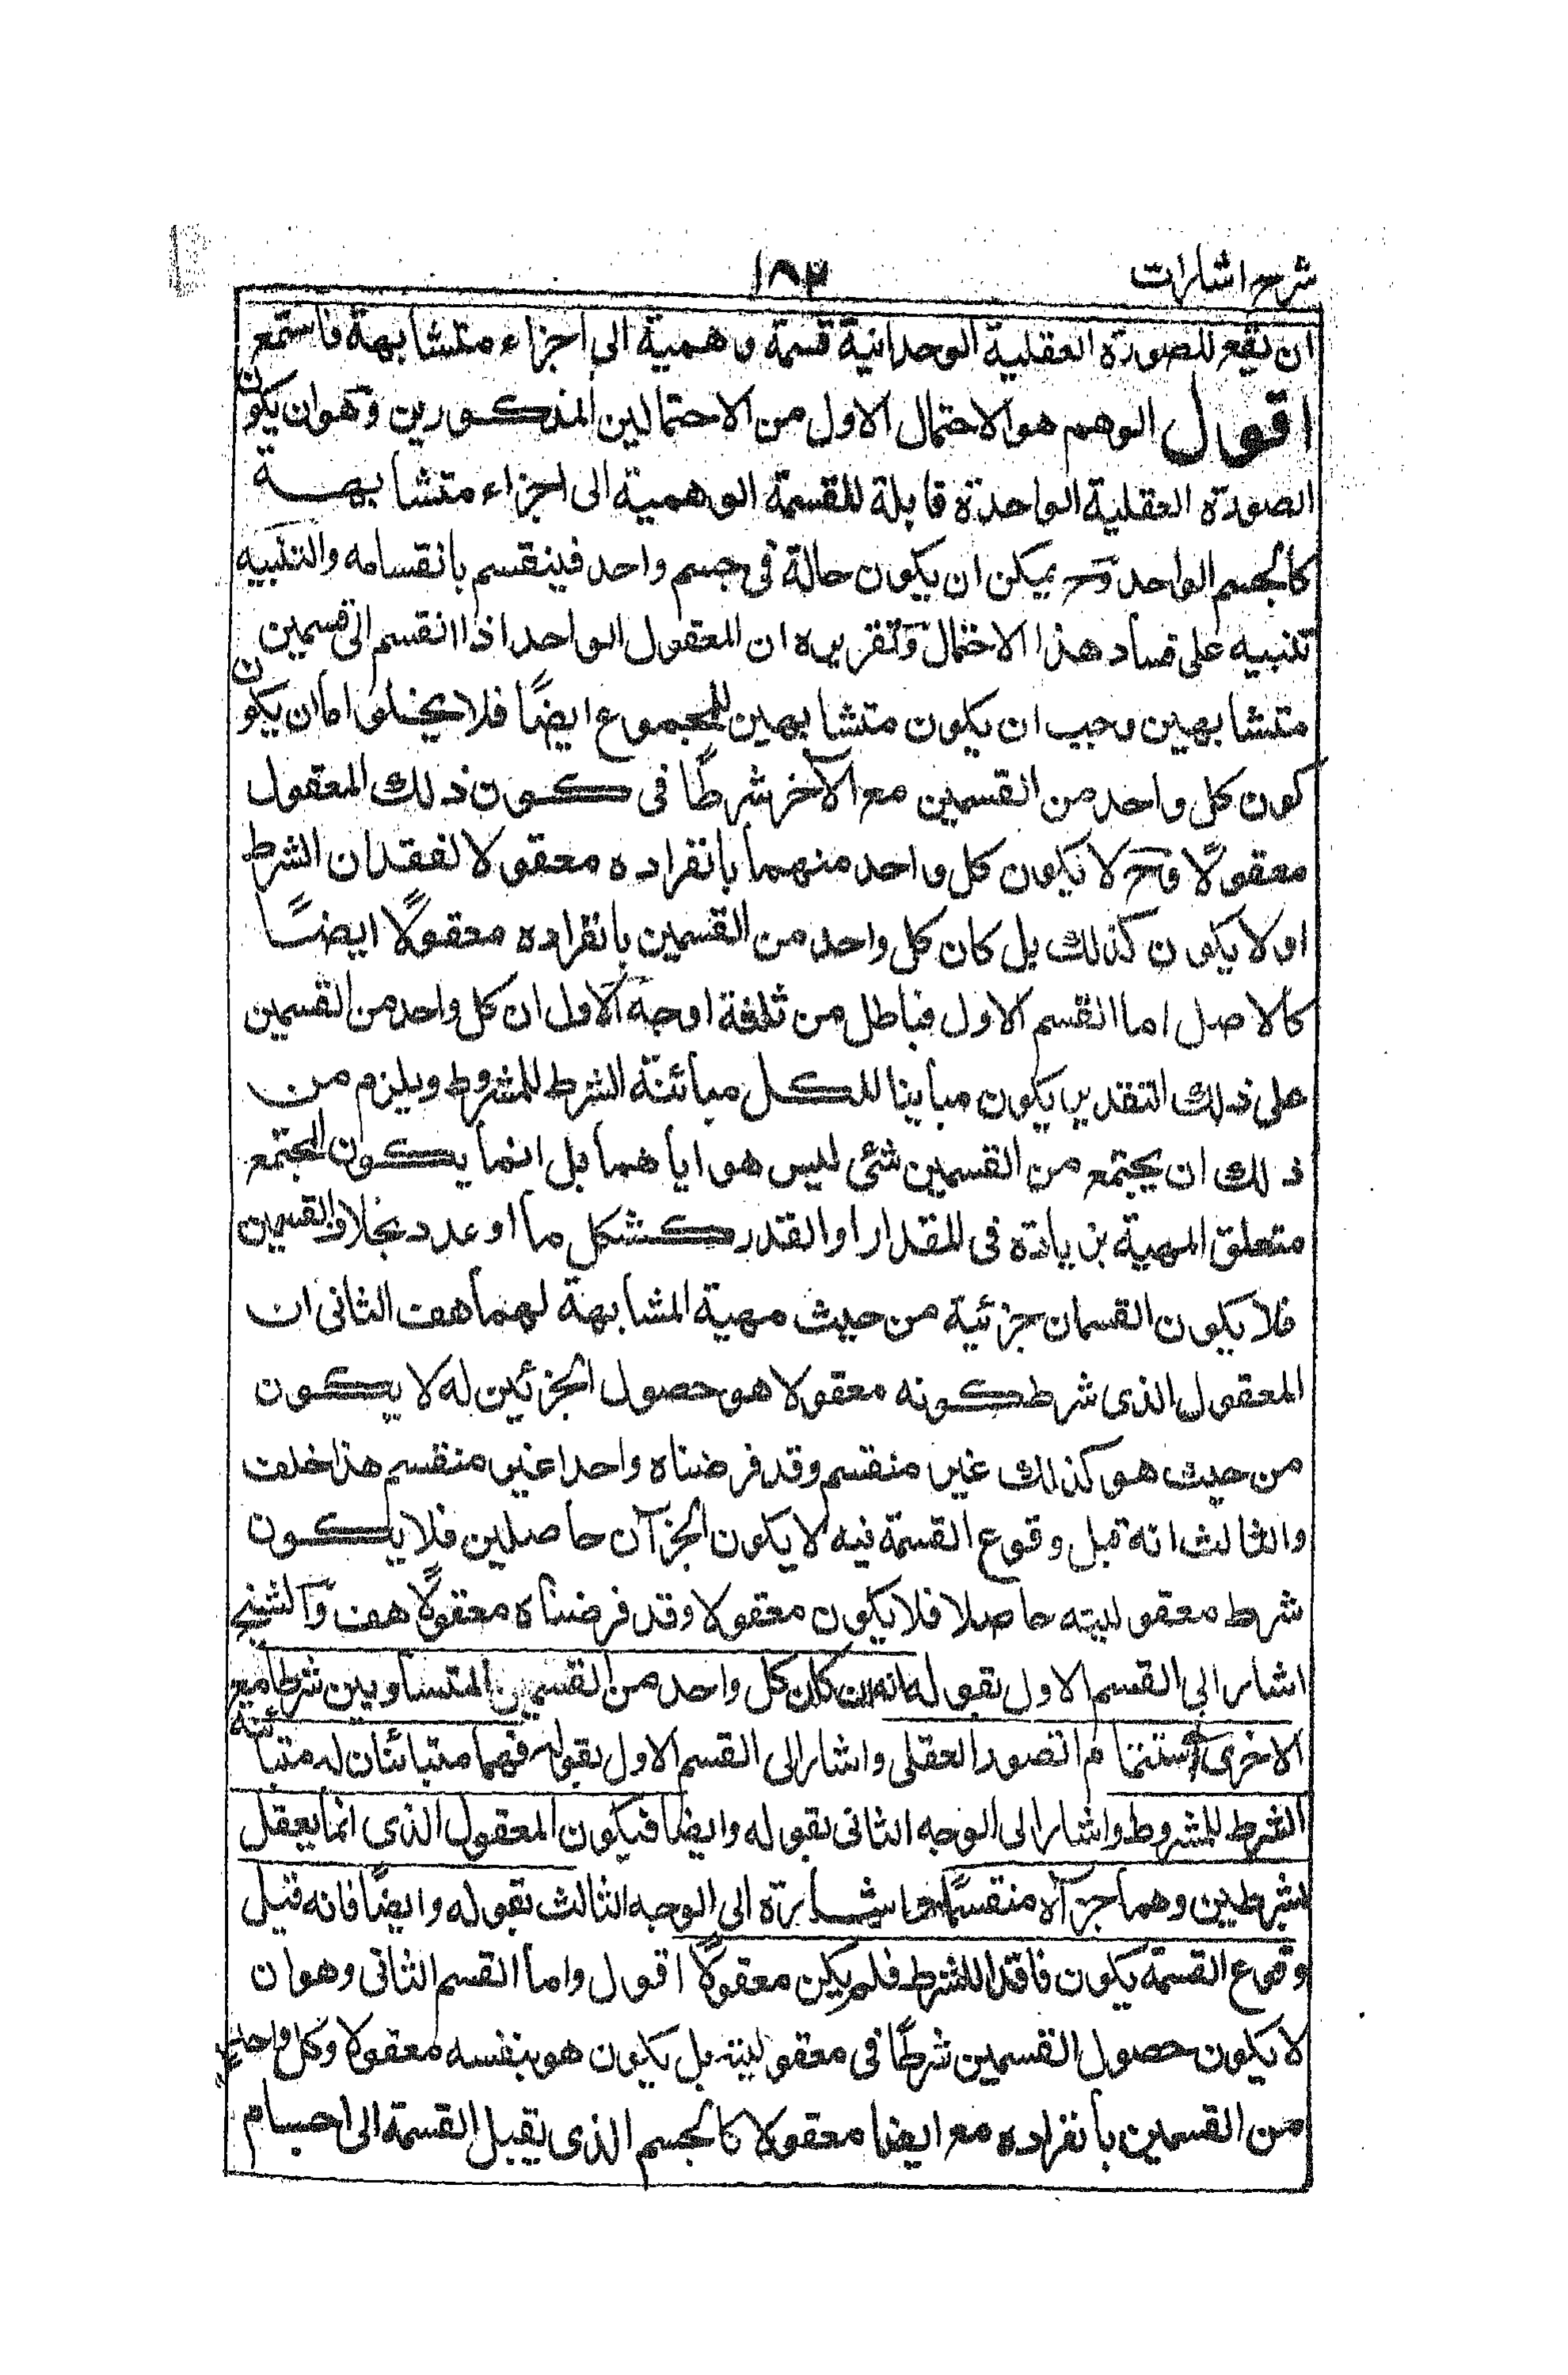 شرح اشارات
١٨٣
ان تقع للصورة العقلية الوحدانية قسمة وهمية الى اجزاء متشابهة فاستمع
اقول الوهم هو الاحتمال الاول من الاحتمالين المذكورين وهو ان يكون
الصورة العقلية الواحدة قابلة للقسمة الوهمية الى اجزاء متشابهة
كالجسم الواحد وح يمكن ان يكون حالة فى جسم واحد فينقسم بانقسامه والتنبيه
تنبيه على فساد هذا الاحتمال وتقريره ان المعقول الواحد اذا انقسم الى قسمين
متشابهين وجب ان يكون متشابهين للمجموع ايضًا فلا يخلوا اما ان يكون
كون كل واحد من القسمين مع الآخر شرطًا فى كون ذلك المعقول
معقولًا وح لا يكون كل واحد منهما بانفراده معقولا لفقدان الشرط
او لا يكون كذلك بل كان كل واحد من القسمين بانفراده معقولًا ايضًا
كالاصل اما القسم الاول فباطل من ثلثة اوجه الاول ان كل واحد من القسمين
على ذلك التقدير يكون مباينا للكل مبائنة الشرط للمشروط ويلزم من
ذلك ان يجتمع من القسمين شئ ليس هو اياهما بل انما يكون المجتمع
متعلق المهية بزيادة فى المقدار او القدر كشكل ما او عدد بخلاف القسمين
فلا يكون القسمان جزئية من حيث مهية المشابهة لهما هف الثانى ان
المعقول الذى شرط كونه معقولا هو حصول الجزئين له لا يكون
من حيث هو كذلك غير منقسم وقد فرضناه واحدا غير منقسم هذا خلف
والثالث انه قبل وقوع القسمة فيه لا يكون الجزآن حاصلين فلا يكون
شرط معقوليته حاصلا فلا يكون معقولا وقد فرضناه معقولًا هف والشيخ
اشار الى القسم الاول بقوله انه ان كان كل واحد من القسمين المتساويين شرطا مع
الاخرى استتمام التصور العقلى واشار الى القسم الاول بقوله فهما متبائنان له متبائنة
الشرط للمشروط واشار الى الوجه الثانى بقوله وايضا فيكون المعقول الذى انما يعقل
بشرطين وهما جزآلا منقسمًا واشارة الى الوجه الثالث بقوله وايضًا فانه قبل
وقوع القسمة يكون فاقدا للشرط فلم يكن معقولًا اقول واما القسم الثانى وهو ان
لا يكون حصول القسمين شرطًا فى معقوليته بل يكون هو بنفسه معقولا وكل واحد
من القسمين بانفراده مع ايضا معقولا كالجسم الذى يقبل القسمة الى اجسام